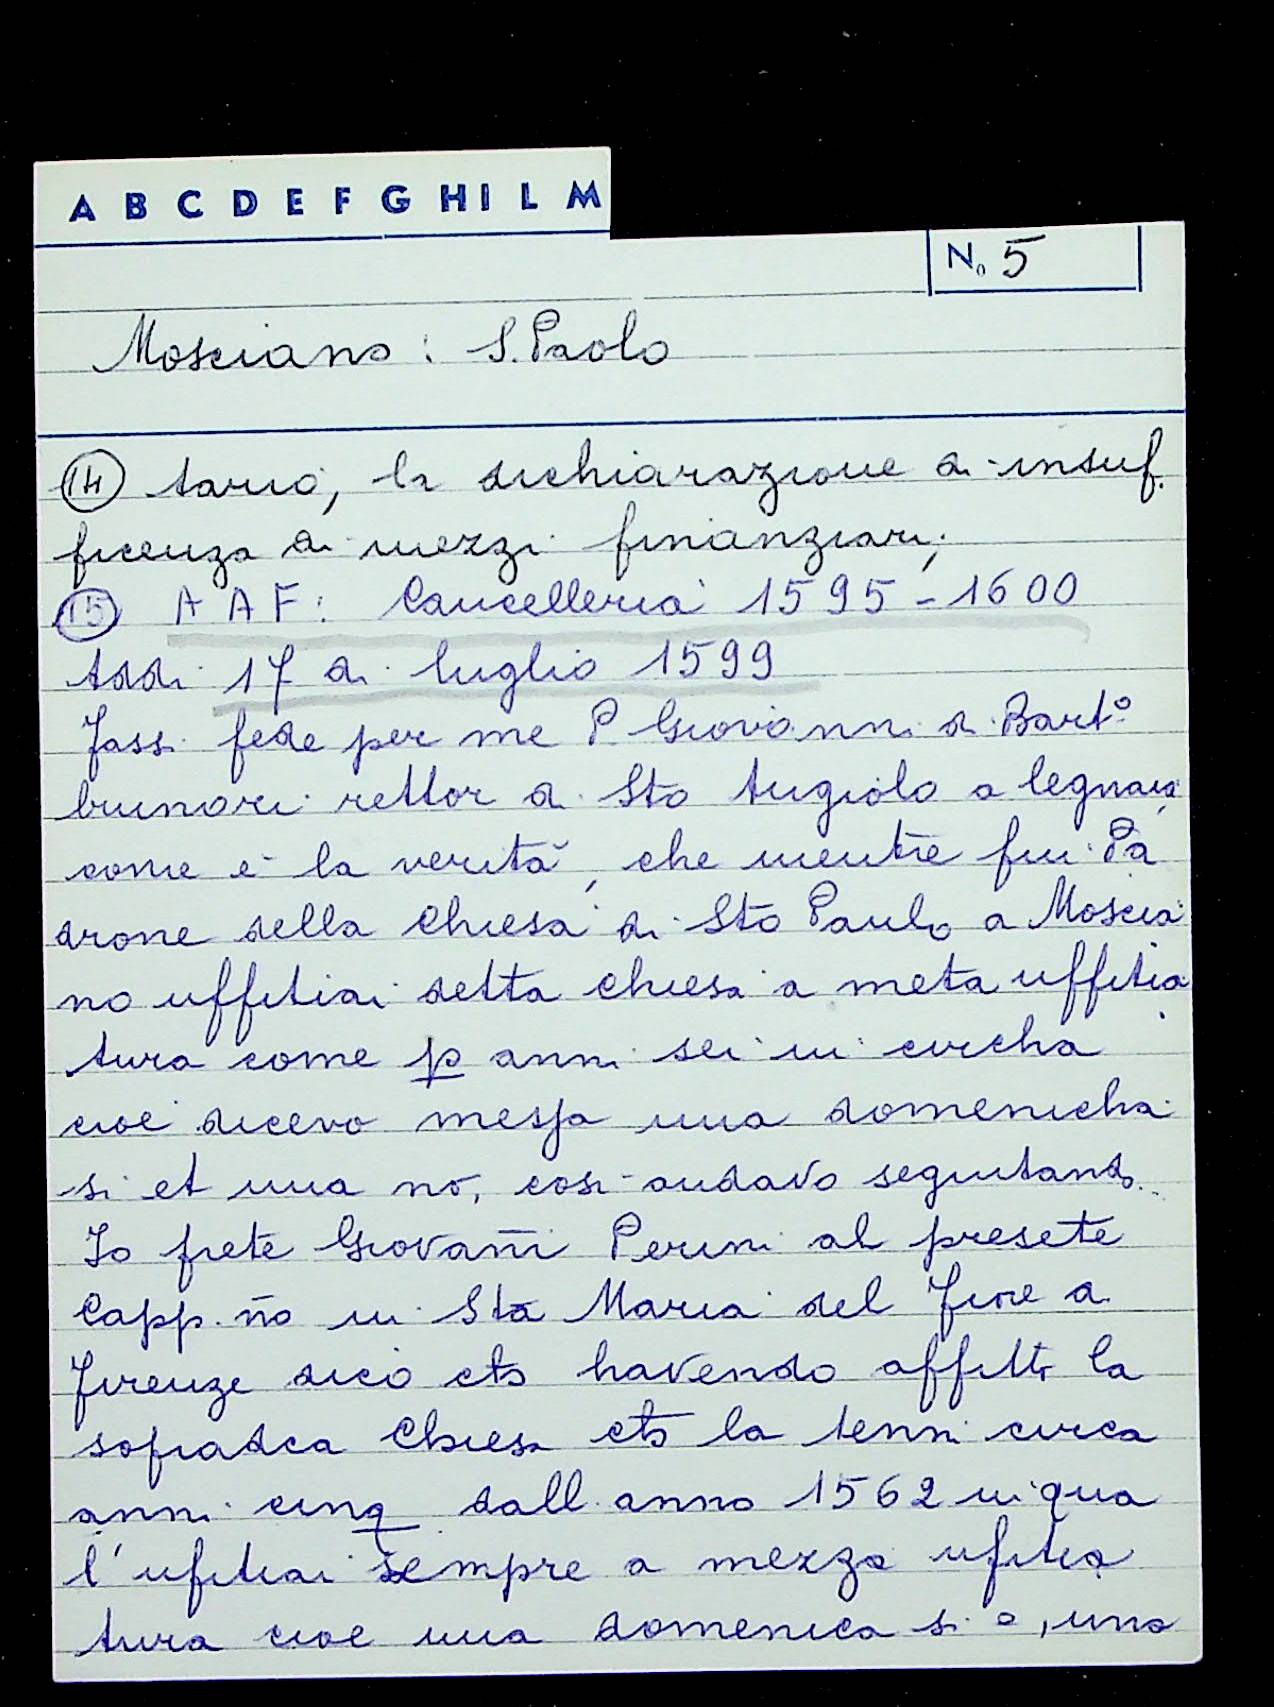 A B C D E F G H I L M
No 5
Mosciano: S. Paolo
(14) tario, la dichiarazione di insuf.
ficenza di mezzi finanziari;
(15) A A F: Cancelleria 1595-1600
Addi 17 di luglio 1599
Fassi fede per me P. Giovanni di Barto
brunori rettor di Sto Angiolo a legnaia
come è la verità, che mentre fui Pa
drone della Chiesa di Sto Paulo a Moscia
no uffitiai detta chiesa a meta uffitia
tura come p anni sei in circha
cioè dicevo messa una domenicha
si et una no, cosi andavo seguitando.
Io frete Giovañi Perini al presete
Capp.ño in Sta Maria del fiore a
firenze dico ets havendo affitto la
sopradca Chiesa ets la tenni circa
anni cinq dall anno 1562 in qua
l'ufitiai sempre a mezza ufitia
tura cioe una domenica si e, una